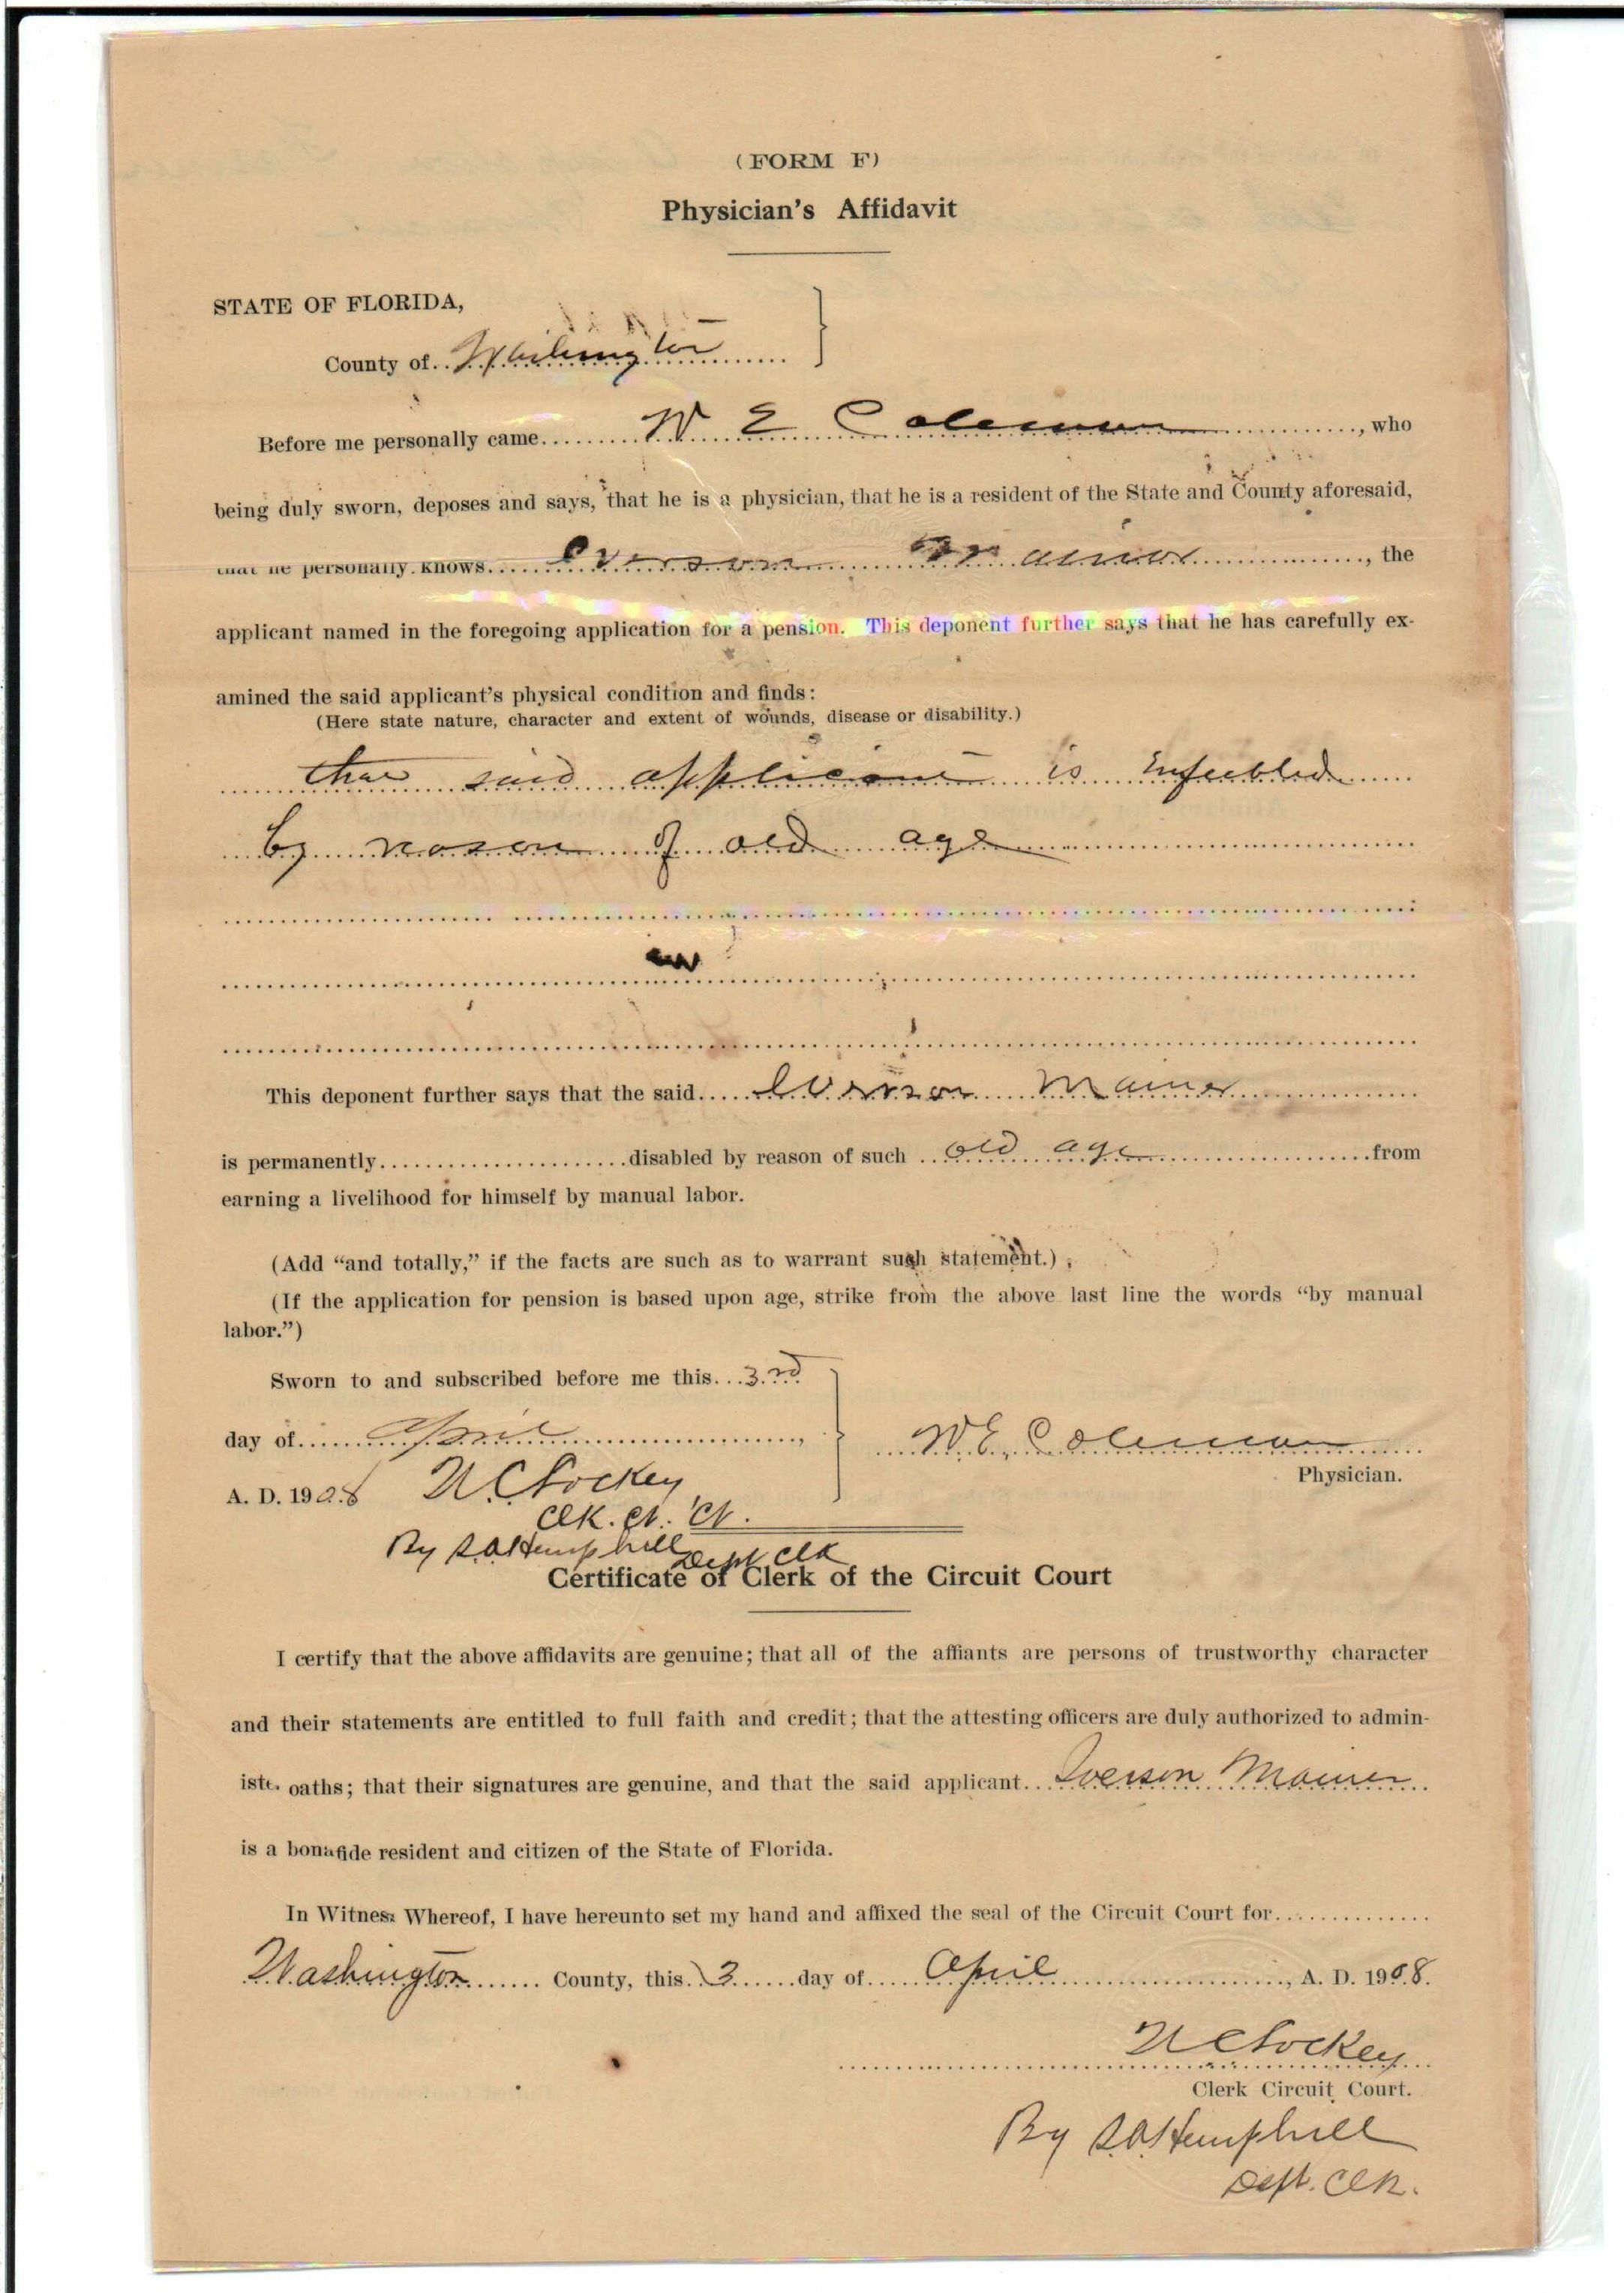 (FORM F)
Physician's Affidavit
STATE OF FLORIDA,
County of Washington
Before me personally came W E Coleman, who
being duly sworn, deposes and says, that he is a physician, that he is a resident of the State and County aforesaid,
that he personally knows Iverson Mainor, the
applicant named in the foregoing application for a pension. This deponent further says that he has carefully ex-
amined the said applicant's physical condition and finds:
(Here state nature, character and extent of wounds, disease or disability.)
that said applicant is Enfeebled
by reason of old age
This deponent further says that the said Iverson Mainer
is permanently disabled by reason of such old age from
earning a livelihood for himself by manual labor.
(Add "and totally," if the facts are such as to warrant such statement.)
(If the application for pension is based upon age, strike from the above last line the words "by manual
labor.")
Sworn to and subscribed before me this 3rd
day of April
W.E. Coleman
Physician.
A. D. 1908 W.C. Lockey
Clk. Ct. Ct.
By S.A. Hemphill
Dept Clk
Certificate of Clerk of the Circuit Court
I certify that the above affidavits are genuine; that all of the affiants are persons of trustworthy character
and their statements are entitled to full faith and credit; that the attesting officers are duly authorized to admin-
iste. oaths; that their signatures are genuine, and that the said applicant Iverson Mainer
is a bonafide resident and citizen of the State of Florida.
In Witness Whereof, I have hereunto set my hand and affixed the seal of the Circuit Court for
Washington County, this 3 day of April, A. D. 1908.
W C Lockey
Clerk Circuit Court.
By S.A. Hemphill
Dept. Clk.